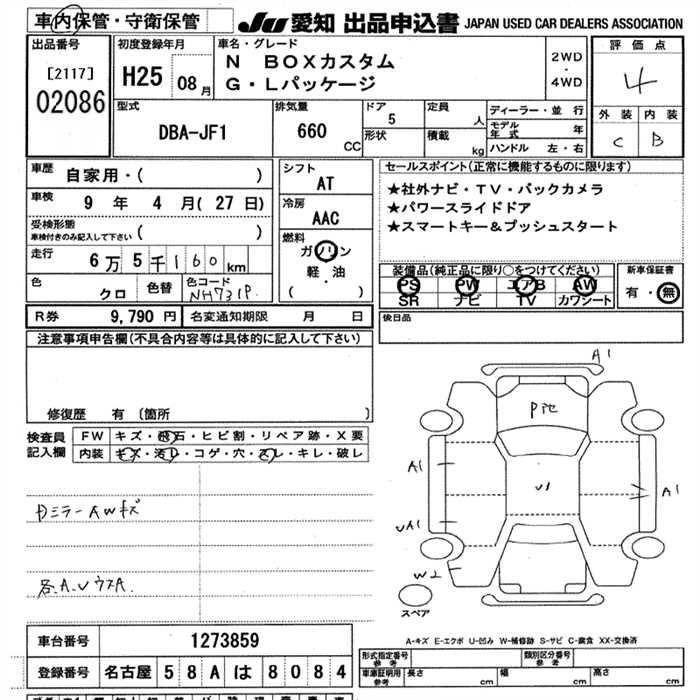 車内保管・守衛保管 JU 愛知 出品申込書 JAPAN USED CAR DEALERS ASSOCIATION
出品番号
[2117]
02086
初度登録年月
H25 08月
車名・グレード
N BOXカスタム
G・Lパッケージ
2WD
・
4WD
評価点
4
外装 内装
C B
型式
DBA-JF1
排気量
660 CC
ドア
5
形状
定員
人
積載
kg
ディーラー・並行
モデル年式 年
ハンドル 左・右
車歴
自家用・( )
車検
9年 4月(27日)
受検形態
車検付きのみ記入して下さい ( )
走行
6万5千160km
色
クロ
色替
色コード
NH731P
シフト
AT
冷房
AAC
燃料
ガソリン
軽・油
( )
セールスポイント(正常に機能するものに限ります)
★社外ナビ・TV・バックカメラ
★パワースライドドア
★スマートキー&プッシュスタート
装備品(純正品に限り○をつけてください)
PS PW エアB AW
SR ナビ TV カワシート
新車保証書
有・無
R券 9,790円 名変通知期限 月 日
後日品
注意事項申告欄(不具合内容等は具体的に記入して下さい)
修復歴 有(箇所 )
検査員
記入欄
FW キズ・飛石・ヒビ割・リペア跡・X要
内装 キズ・汚レ・コゲ・穴・スレ・キレ・破レ
ミラーAWキズ
各A.Uウス A.
A1
P他
A1
U1
A1
UA1
W2
スペア
A-キズ E-エクボ U-凹み W-補修跡 S-サビ C-腐食 XX-交換済
車台番号 1273859
登録番号 名古屋 58A は 8084
形式指定番号
参考
類別区分番号
参考
車庫証明用
参考
長さ cm 幅 cm 高さ cm